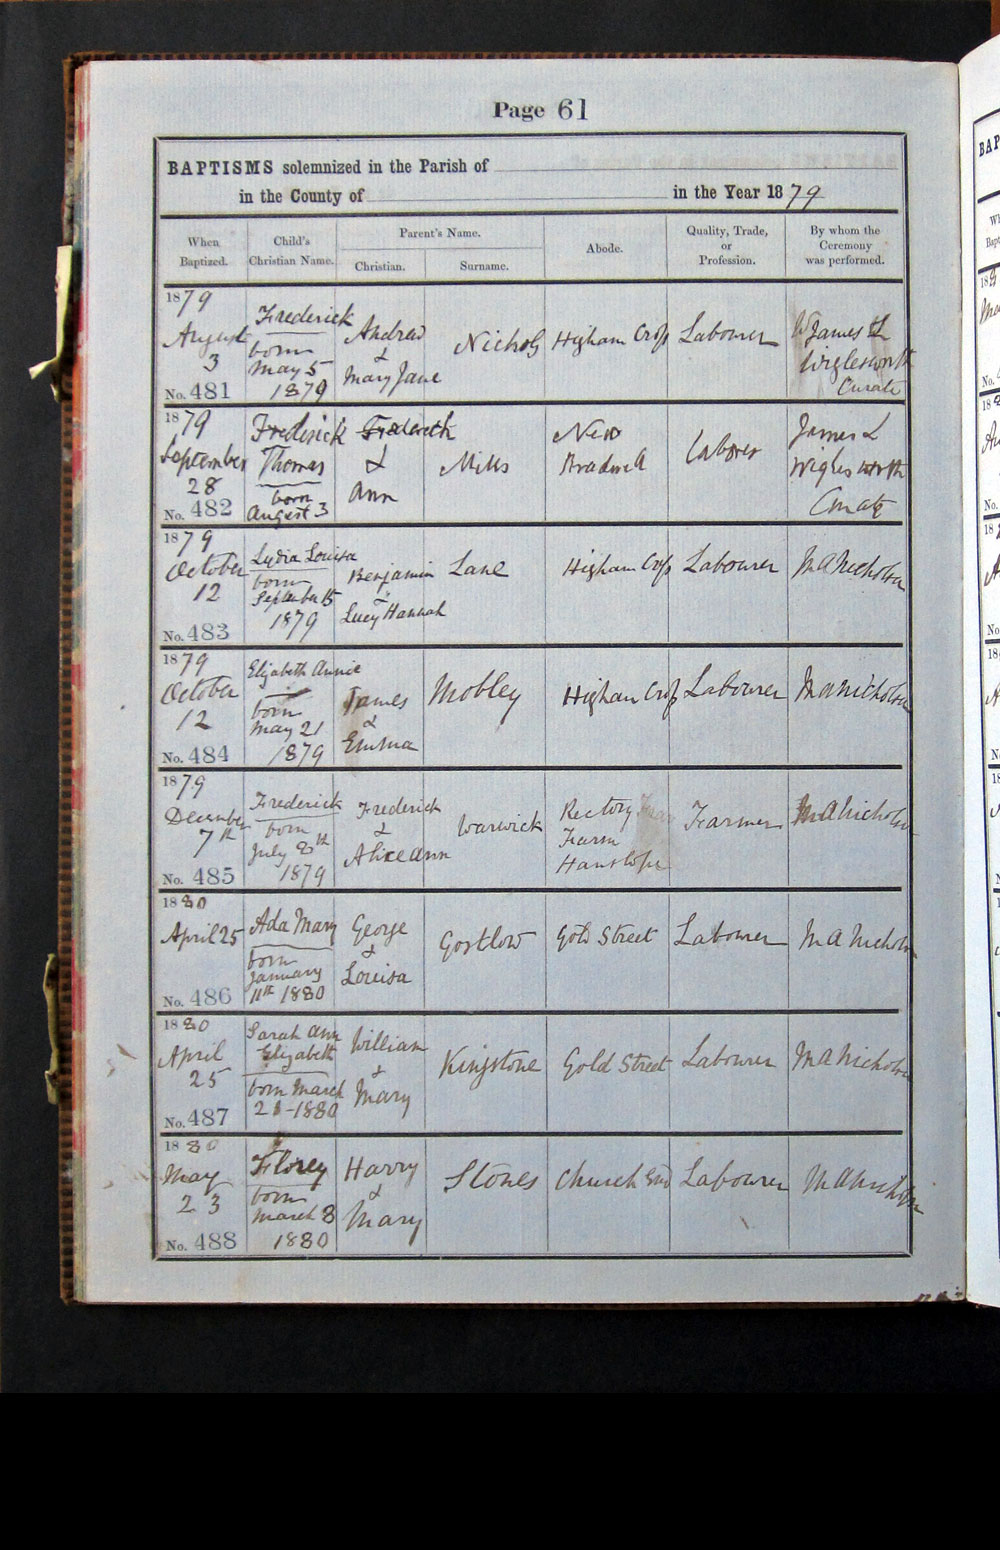 Page 61
BAPTISMS solemnized in the Parish of
in the County of in the Year 1879
When Baptized.
Child's Christian Name.
Parent's Name.
Christian.
Surname.
Abode.
Quality, Trade, or Profession.
By whom the Ceremony was performed.
1879
August
3
No. 481
Frederick
born
May 5
1879
Andrew
&
Mary Jane
Nichols
Higham Cross
Labourer
James L
Wiglesworth
Curate
1879
September
28
No. 482
Frederick
Thomas
born
August 3
Frederick
&
Ann
Mills
New
Bradwell
Labourer
James L
Wiglesworth
Curate
1879
October
12
No. 483
Lydia Louisa
born
September 15
1879
Benjamin
&
Lucy Hannah
Lane
Higham Cross
Labourer
M A Nicholson
1879
October
12
No. 484
Elizabeth Annie
born
May 21
1879
James
&
Emma
Mobley
Higham Cross
Labourer
M A Nicholson
1879
December
7th
No. 485
Frederick
born
July 8th
1879
Frederick
&
Alice Ann
Warwick
Rectory
Farm
Hanslope
Farmer
M A Nicholson
1880
April 25
No. 486
Ada Mary
born
January
11th 1880
George
&
Louisa
Gostlow
Gold Street
Labourer
M A Nicholson
1880
April
25
No. 487
Sarah Ann
Elizabeth
born March
21-1880
William
&
Mary
Kingstone
Gold Street
Labourer
M A Nicholson
1880
May
23
No. 488
Florey
born
March 8
1880
Harry
&
Mary
Stones
Church End
Labourer
M A Nicholson